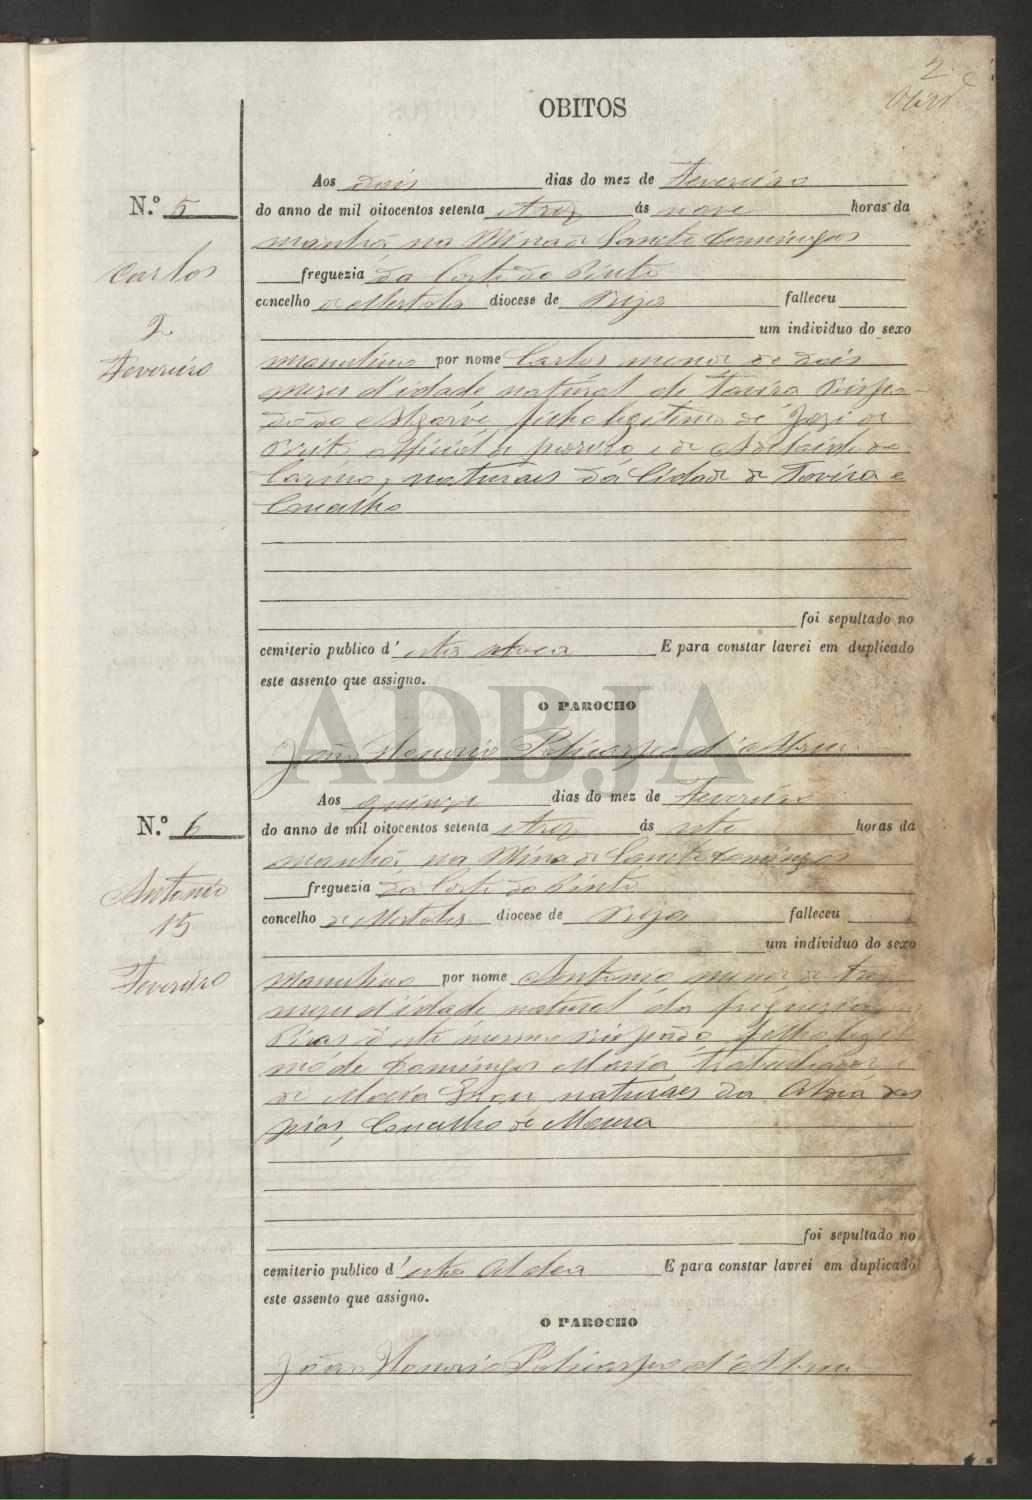 2
OBITOS
Aos dois dias do mez de Fevereiro
N.º 5
do anno de mil oitocentos setenta e trez ás nove horas da
manhã na Mina de Sancto Domingos
Carlos
freguezia da Corte do Pinto
concelho de Mertola diocese de Beja falleceu
2
um individuo do sexo
Fevereiro
masculino por nome Carlos menor de dois
mezes d'idade natural de Tavira Bispa-
do do Algarve, filho legitimo de José de
Brito official de ferreiro, e de Adelaide do
Carmo, naturaes da Cidade de Tavira e
Concelho
foi sepultado no
cemiterio publico d'esta Aldea E para constar lavrei em duplicado
este assento que assigno.
O PAROCHO
ADBJA
João Honorio Policarpo d'Abreu
Aos quinze dias do mez de Fevereiro
N.º 6
do anno de mil oitocentos setenta e trez ás sete horas da
manhã na Mina de Sancto Domingos
Antonio
freguezia da Corte do Pinto
15
concelho de Mertola diocese de Beja falleceu
um individuo do sexo
Fevereiro
masculino por nome Antonio menor de trez
mezes d'idade natural da freguezia de
Pias d'este mesmo Bispado filho legiti
mo de Domingos Maria, trabalhador e
de Maria naturaes da Aldea das
pias, Concelho de Moura
foi sepultado no
cemiterio publico d'esta Aldea E para constar lavrei em duplicado
este assento que assigno.
O PAROCHO
João Honorio Policarpo d'Abreu